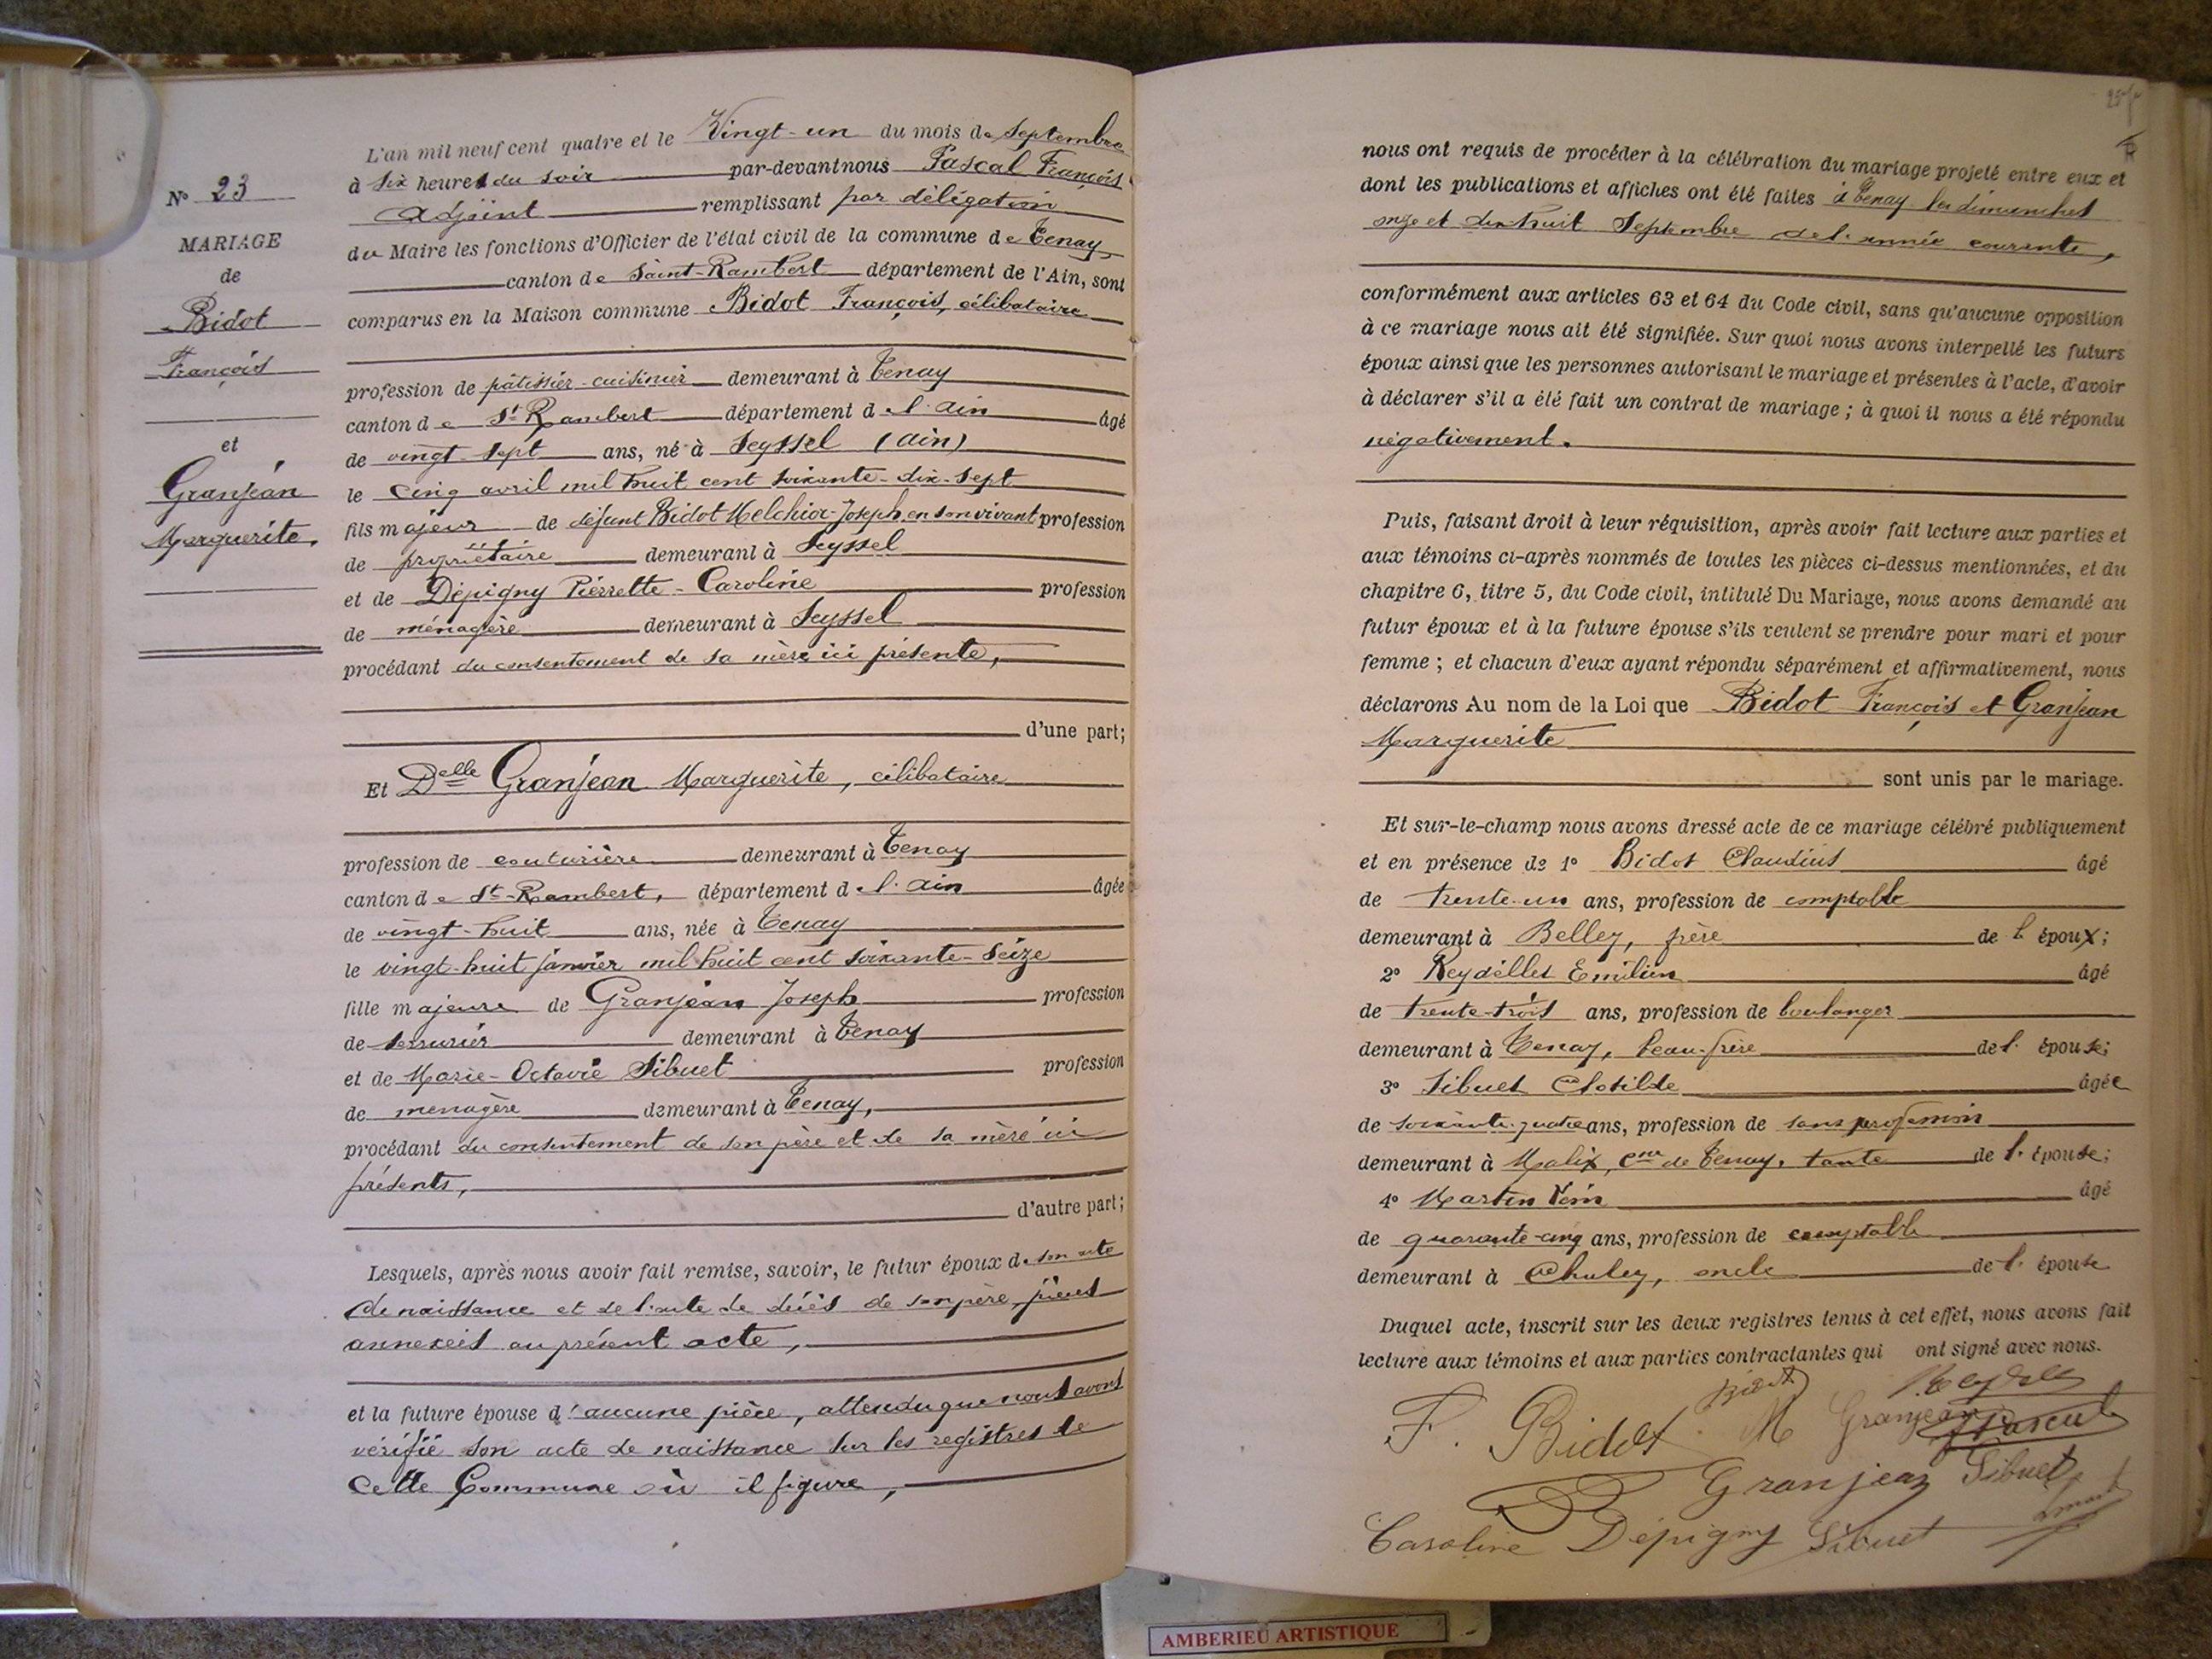 N° 23
MARIAGE
de
Bidot
François
et
Granjean
Marguerite.
L'an mil neuf cent quatre et le Vingt-un du mois de Septembre
à six heures du soir par-devant nous Pascal François
Adjoint remplissant par délégation
du Maire les fonctions d'Officier de l'état civil de la commune de Tenay
canton de Saint-Rambert département de l'Ain, sont
comparus en la Maison commune Bidot François, célibataire
profession de pâtissier-cuisinier demeurant à Tenay
canton de St Rambert département d l'Ain âgé
de vingt-sept ans, né à Seyssel (Ain)
le cinq avril mil huit cent soixante-dix-sept
fils majeur de défunt Bidot Melchior-Joseph en son vivant profession
de propriétaire demeurant à Seyssel
et de Dépigny Pierrette-Caroline profession
de ménagère demeurant à Seyssel
procédant du consentement de sa mère ici présente,
d'une part;
Et Delle Granjean Marguerite, célibataire
profession de couturière demeurant à Tenay
canton de St-Rambert, département d l'Ain âgée
de vingt-huit ans, née à Tenay
le vingt-huit janvier mil huit cent soixante-seize
fille majeure de Granjean Joseph profession
de serrurier demeurant à Tenay
et de Marie-Octavie Sibuet profession
de ménagère demeurant à Tenay,
procédant du consentement de son père et de sa mère ici
présents,
d'autre part;
Lesquels, après nous avoir fait remise, savoir, le futur époux de son acte
de naissance et de l'acte de décès de son père, pièces
annexées au présent acte,
et la future épouse d'aucune pièce, attendu que nous avons
vérifié son acte de naissance sur les registres de
cette Commune où il figure,
nous ont requis de procéder à la célébration du mariage projeté entre eux et
dont les publications et affiches ont été faites à Tenay les dimanches
onze et dix-huit Septembre de l'année courante,
conformément aux articles 63 et 64 du Code civil, sans qu'aucune opposition
à ce mariage nous ait été signifiée. Sur quoi nous avons interpellé les futurs
époux ainsi que les personnes autorisant le mariage et présentes à l'acte, d'avoir
à déclarer s'il a été fait un contrat de mariage ; à quoi il nous a été répondu
négativement.
Puis, faisant droit à leur réquisition, après avoir fait lecture aux parties et
aux témoins ci-après nommés de toutes les pièces ci-dessus mentionnées, et du
chapitre 6, titre 5, du Code civil, intitulé Du Mariage, nous avons demandé au
futur époux et à la future épouse s'ils veulent se prendre pour mari et pour
femme ; et chacun d'eux ayant répondu séparément et affirmativement, nous
déclarons Au nom de la Loi que Bidot François et Granjean
Marguerite
sont unis par le mariage.
Et sur-le-champ nous avons dressé acte de ce mariage célébré publiquement
et en présence de 1° Bidot Claudius âgé
de trente-un ans, profession de comptable
demeurant à Belley, frère de l'époux;
2° Reydellet Emilien âgé
de trente-trois ans, profession de boulanger
demeurant à Tenay, beau-frère de l'épouse;
3° Sibuet Clotilde âgée
de soixante-quatre ans, profession de sans profession
demeurant à Malix, cne de Tenay, tante de l'épouse;
4° Martin âgé
de quarante-cinq ans, profession de comptable
demeurant à Chaley, oncle de l'épouse
Duquel acte, inscrit sur les deux registres tenus à cet effet, nous avons fait
lecture aux témoins et aux parties contractantes qui ont signé avec nous.
Bidot
F. Bidot M Granjean
FPascal
Granjean Sibuet
Caroline Dépigny Sibuet
AMBERIEU ARTISTIQUE